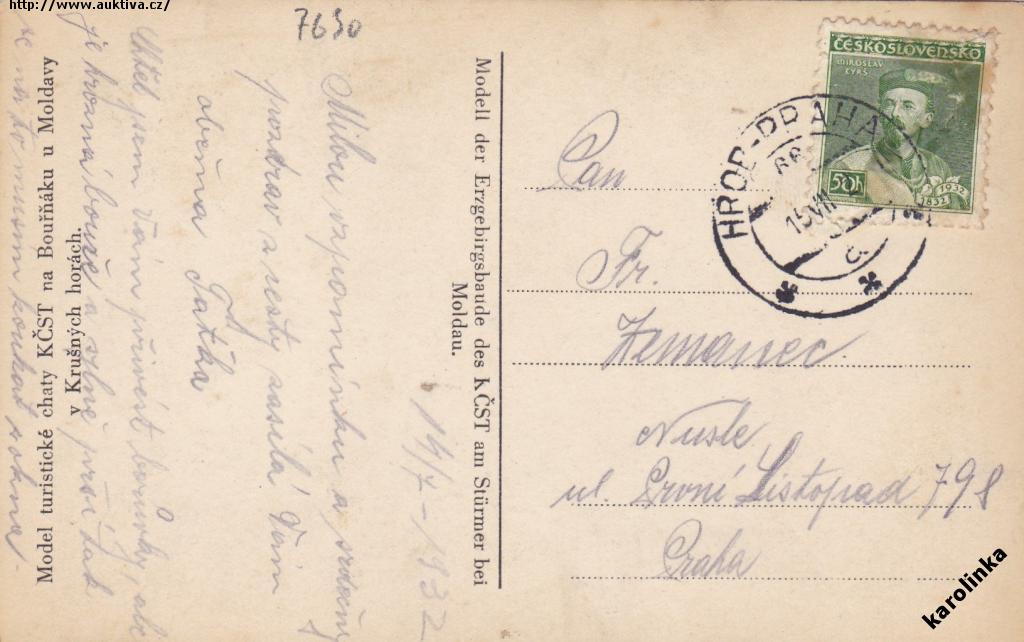 http://www.auktiva.cz/
7630
Modell der Erzgebirgsbaude des KČST am Stürmer bei
Moldau.
14/7-1932
Milou vzpomínku a srdečný
pozdrav z cesty zasílá Vám
Taťka
Chtěl jsem Vám přivést borůvky, ale
je hrozná bouře a silně prší tak
se na to musím koukat z okna-
Model turistické chaty KČST na Bouřňáku u Moldavy
v Krušných horách.
ČESKOSLOVENSKO
MIROSLAV
TYRŠ
50h
1932
1832
HROB-PRAHA
15 VII
Pan
Fr.
Zemanec
Nusle
ul. První Listopad 798
Praha
karolinka